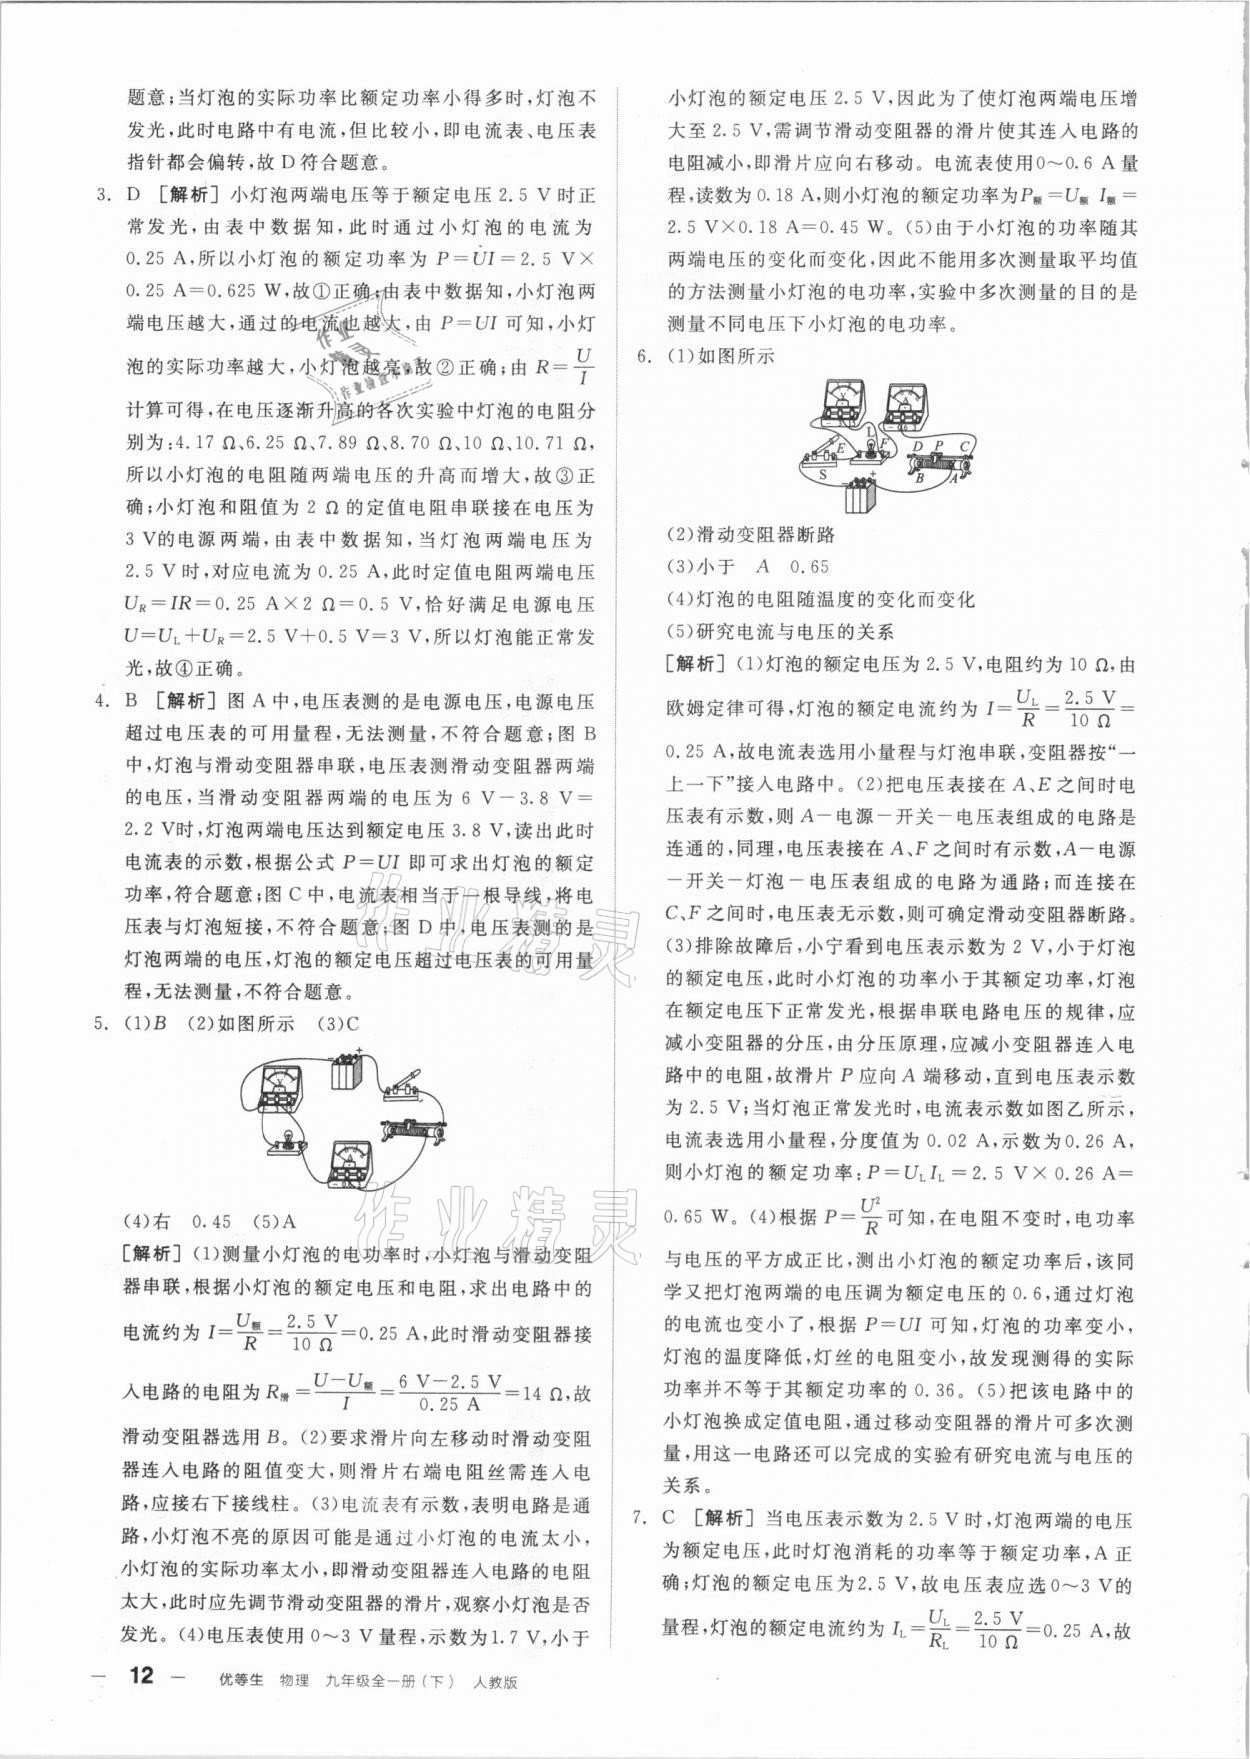 题意;当灯泡的实际功率比额定功率小得多时,灯泡不
发光,此时电路中有电流,但比较小,即电流表、电压表
指针都会偏转,故 D 符合题意。
3. D [解析] 小灯泡两端电压等于额定电压 2.5 V 时正
常发光,由表中数据知,此时通过小灯泡的电流为
0.25 A,所以小灯泡的额定功率为 P=UI=2.5 V×
0.25 A=0.625 W,故①正确;由表中数据知,小灯泡两
端电压越大,通过的电流也越大,由 P=UI 可知,小灯
泡的实际功率越大,小灯泡越亮,故②正确;由 R=U/I
计算可得,在电压逐渐升高的各次实验中灯泡的电阻分
别为:4.17 Ω、6.25 Ω、7.89 Ω、8.70 Ω、10 Ω、10.71 Ω,
所以小灯泡的电阻随两端电压的升高而增大,故③正
确;小灯泡和阻值为 2 Ω 的定值电阻串联接在电压为
3 V的电源两端,由表中数据知,当灯泡两端电压为
2.5 V 时,对应电流为 0.25 A,此时定值电阻两端电压
U_R=IR=0.25 A×2 Ω=0.5 V,恰好满足电源电压
U=U_L+U_R=2.5 V+0.5 V=3 V,所以灯泡能正常发
光,故④正确。
4. B [解析] 图 A 中,电压表测的是电源电压,电源电压
超过电压表的可用量程,无法测量,不符合题意;图 B
中,灯泡与滑动变阻器串联,电压表测滑动变阻器两端
的电压,当滑动变阻器两端的电压为 6 V-3.8 V=
2.2 V时,灯泡两端电压达到额定电压 3.8 V,读出此时
电流表的示数,根据公式 P=UI 即可求出灯泡的额定
功率,符合题意;图 C 中,电流表相当于一根导线,将电
压表与灯泡短接,不符合题意;图 D 中,电压表测的是
灯泡两端的电压,灯泡的额定电压超过电压表的可用量
程,无法测量,不符合题意。
5. (1)B (2)如图所示 (3)C
- +
V
A
(4)右 0.45 (5)A
[解析] (1)测量小灯泡的电功率时,小灯泡与滑动变阻
器串联,根据小灯泡的额定电压和电阻,求出电路中的
电流约为 I=U额/R=2.5 V/10 Ω=0.25 A,此时滑动变阻器接
入电路的电阻为 R滑=(U-U额)/I=(6 V-2.5 V)/0.25 A=14 Ω,故
滑动变阻器选用 B。(2)要求滑片向左移动时滑动变阻
器连入电路的阻值变大,则滑片右端电阻丝需连入电
路,应接右下接线柱。(3)电流表有示数,表明电路是通
路,小灯泡不亮的原因可能是通过小灯泡的电流太小,
小灯泡的实际功率太小,即滑动变阻器连入电路的电阻
太大,此时应先调节滑动变阻器的滑片,观察小灯泡是否
发光。(4)电压表使用 0～3 V 量程,示数为1.7 V,小于
小灯泡的额定电压 2.5 V,因此为了使灯泡两端电压增
大至 2.5 V,需调节滑动变阻器的滑片使其连入电路的
电阻减小,即滑片应向右移动。电流表使用0～0.6 A 量
程,读数为 0.18 A,则小灯泡的额定功率为P额=U额 I额=
2.5 V×0.18 A=0.45 W。(5)由于小灯泡的功率随其
两端电压的变化而变化,因此不能用多次测量取平均值
的方法测量小灯泡的电功率,实验中多次测量的目的是
测量不同电压下小灯泡的电功率。
6. (1)如图所示
V A
L E F D P C
S B A
(2)滑动变阻器断路
(3)小于 A 0.65
(4)灯泡的电阻随温度的变化而变化
(5)研究电流与电压的关系
[解析] (1)灯泡的额定电压为 2.5 V,电阻约为 10 Ω,由
欧姆定律可得,灯泡的额定电流约为 I=U_L/R=2.5 V/10 Ω=
0.25 A,故电流表选用小量程与灯泡串联,变阻器按“一
上一下”接入电路中。(2)把电压表接在 A、E 之间时电
压表有示数,则 A-电源-开关-电压表组成的电路是
连通的,同理,电压表接在 A、F 之间时有示数,A-电源
-开关-灯泡-电压表组成的电路为通路;而连接在
C、F 之间时,电压表无示数,则可确定滑动变阻器断路。
(3)排除故障后,小宁看到电压表示数为 2 V,小于灯泡
的额定电压,此时小灯泡的功率小于其额定功率,灯泡
在额定电压下正常发光,根据串联电路电压的规律,应
减小变阻器的分压,由分压原理,应减小变阻器连入电
路中的电阻,故滑片 P 应向 A 端移动,直到电压表示数
为 2.5 V;当灯泡正常发光时,电流表示数如图乙所示,
电流表选用小量程,分度值为 0.02 A,示数为0.26 A,
则小灯泡的额定功率:P=U_L I_L=2.5 V×0.26 A=
0.65 W。(4)根据 P=U²/R可知,在电阻不变时,电功率
与电压的平方成正比,测出小灯泡的额定功率后,该同
学又把灯泡两端的电压调为额定电压的 0.6,通过灯泡
的电流也变小了,根据 P=UI 可知,灯泡的功率变小,
灯泡的温度降低,灯丝的电阻变小,故发现测得的实际
功率并不等于其额定功率的 0.36。(5)把该电路中的
小灯泡换成定值电阻,通过移动变阻器的滑片可多次测
量,用这一电路还可以完成的实验有研究电流与电压的
关系。
7. C [解析] 当电压表示数为 2.5 V 时,灯泡两端的电压
为额定电压,此时灯泡消耗的功率等于额定功率,A 正
确;灯泡的额定电压为2.5 V,故电压表应选 0～3 V的
量程,灯泡的额定电流约为 I_L=U_L/R_L=2.5 V/10 Ω=0.25 A,故
— 12 — 优等生 物理 九年级全一册(下) 人教版
作业精灵
作业精灵